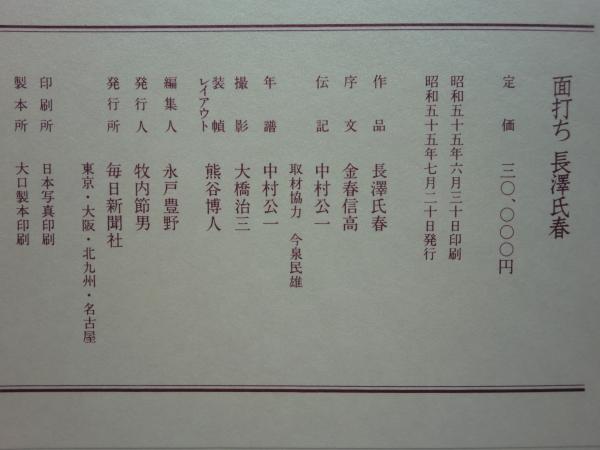 面打ち 長澤氏春
定価 三〇、〇〇〇円
昭和五十五年六月三十日印刷
昭和五十五年七月二十日発行
作品 長澤氏春
序文 金春信高
伝記 中村公一
取材協力 今泉民雄
年譜 中村公一
撮影 大橋治三
装幀 熊谷博人
レイアウト
編集人 永戸豊野
発行人 牧内節男
発行所 毎日新聞社
東京・大阪・北九州・名古屋
印刷所 日本写真印刷
製本所 大口製本印刷